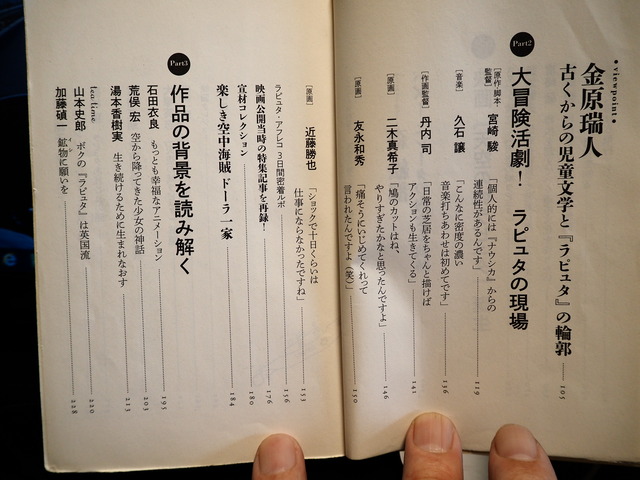 ●viewpoint●
金原瑞人
古くからの児童文学と『ラピュタ』の輪郭 105
Part2
大冒険活劇! ラピュタの現場
[原作・脚本・監督] 宮崎 駿 「個人的には『ナウシカ』からの
連続性があるんです」 119
[音楽] 久石 譲 「こんなに密度の濃い
音楽打ちあわせは初めてです」 136
[作画監督] 丹内 司 「日常の芝居をちゃんと描けば
アクションも生きてくる」 141
[原画] 二木真希子 「鳩のカットはね、
やりすぎたかなと思ったんですよ」 146
[原画] 友永和秀 「痛そうにいじめてくれって
言われたんですよ(笑)」 150
[原画] 近藤勝也 「ショックで十日くらいは
仕事にならなかったですね」 153
ラピュタ・アフレコ 3日間密着ルポ 156
映画公開当時の特集記事を再録! 176
宣材コレクション 180
楽しき空中海賊 ドーラ一家 184
Part3
作品の背景を読み解く
石田衣良 もっとも幸福なアニメーション 195
荒俣 宏 空から降ってきた少女の神話 203
湯本香樹実 生き続けるために生まれなおす 213
tea time
山本史郎 ボクの『ラピュタ』は英国流 220
加藤碵一 鉱物に願いを 228